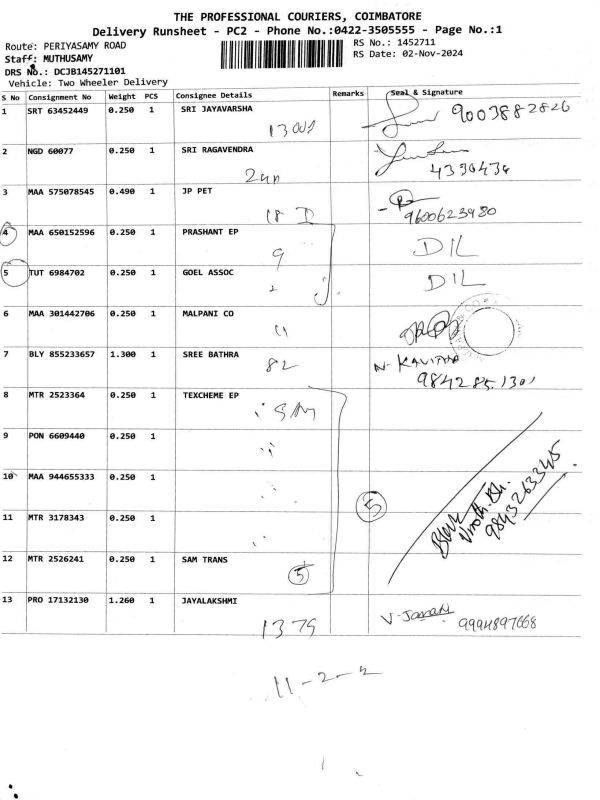 THE PROFESSIONAL COURIERS, COIMBATORE
Delivery Runsheet - PC2 - Phone No.:0422-3505555 - Page No.:1
Route: PERIYASAMY ROAD
RS No.: 1452711
Staff: MUTHUSAMY
RS Date: 02-Nov-2024
DRS No.: DCJB145271101
Vehicle: Two Wheeler Delivery
S No Consignment No Weight PCS Consignee Details Remarks Seal & Signature
1 SRT 63452449 0.250 1 SRI JAYAVARSHA
9003882826
2 NGD 60077 0.250 1 SRI RAGAVENDRA
4390436
3 MAA 575078545 0.490 1 JP PET
18 D
9600623980
4 MAA 650152596 0.250 1 PRASHANT EP
9 DIL
5 TUT 6984702 0.250 1 GOEL ASSOC
DIL
6 MAA 301442706 0.250 1 MALPANI CO
11
7 BLY 855233657 1.300 1 SREE BATHRA
82 N. KAVITHA
9842851301
8 MTR 2523364 0.250 1 TEXCHEME EP
9 PON 6609440 0.250 1
10 MAA 944655333 0.250 1
5
9843263345
11 MTR 3178343 0.250 1
12 MTR 2526241 0.250 1 SAM TRANS
5
13 PRO 17132130 1.260 1 JAYALAKSHMI
1379
V. Janaki 9994897668
11-2-2